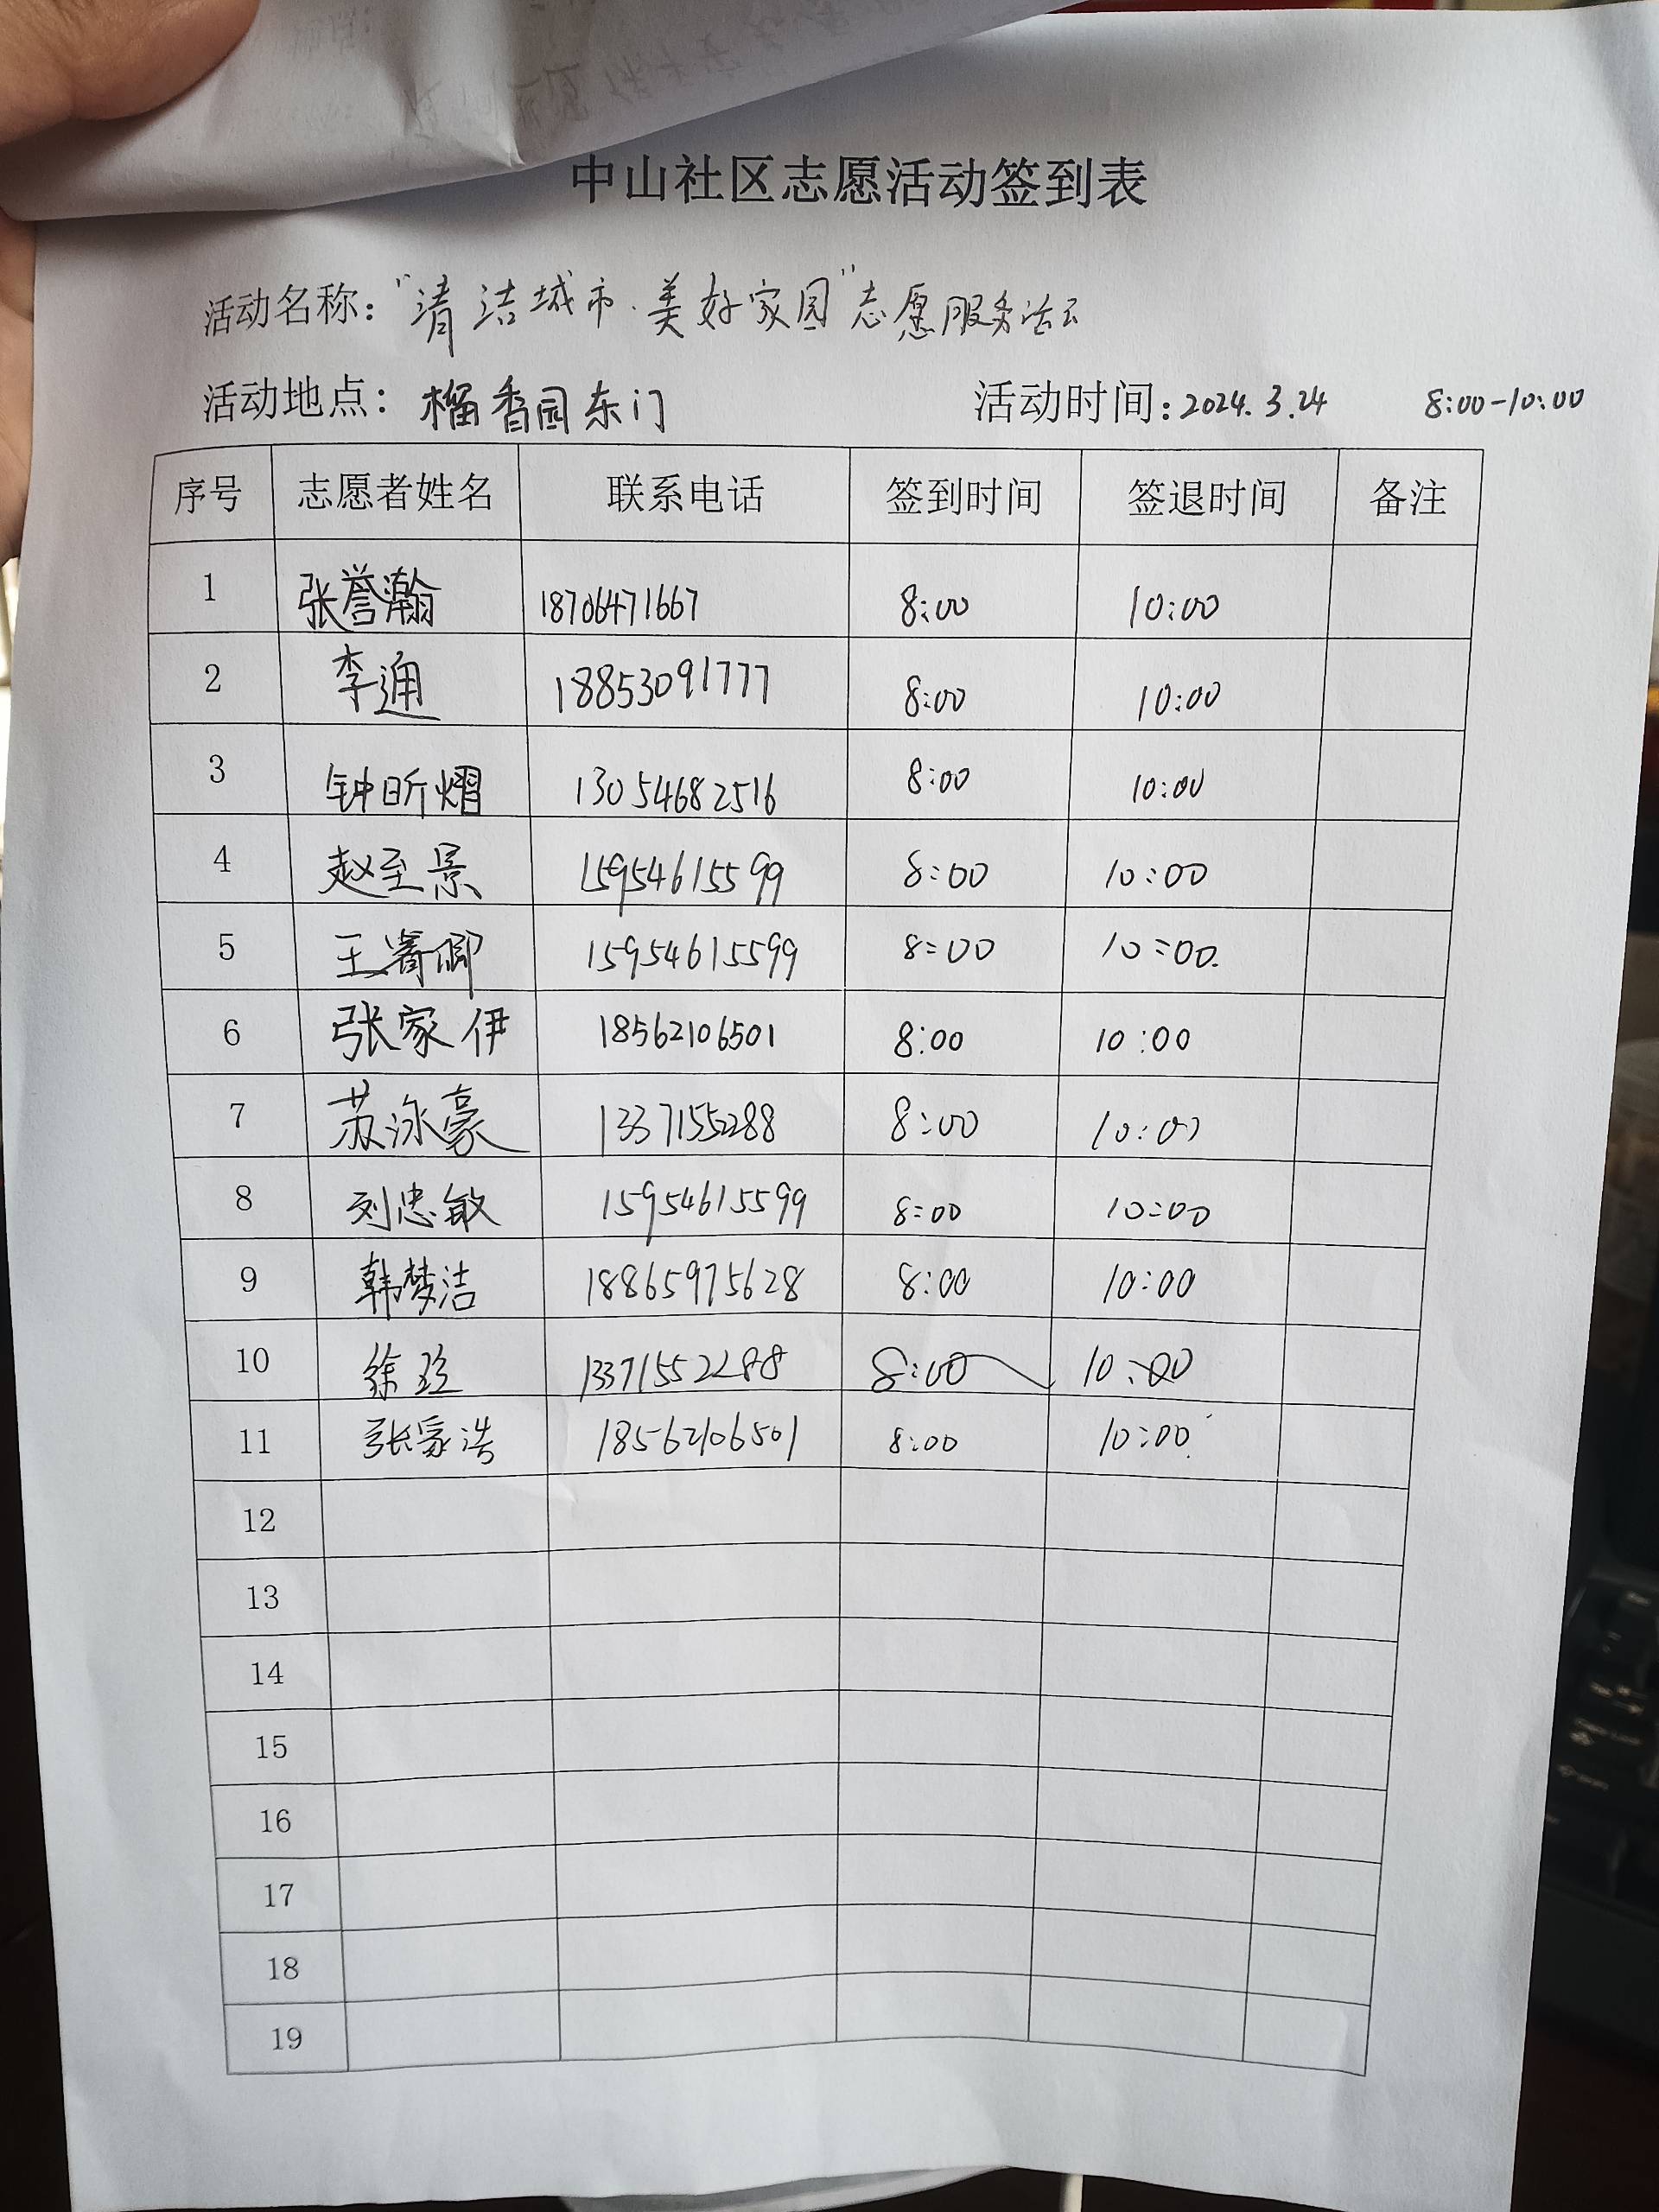 中山社区志愿活动签到表
活动名称："清洁城市·美好家园"志愿服务活动
活动地点：榴香园东门 活动时间：2024.3.24 8:00-10:00
序号 志愿者姓名 联系电话 签到时间 签退时间 备注
1 张誉瀚 18706471667 8:00 10:00
2 李通 18853091777 8:00 10:00
3 钟昕熠 13054682516 8:00 10:00
4 赵至景 15954615599 8:00 10:00
5 王 15954615599 8:00 10:00
6 张家伊 18562106501 8:00 10:00
7 苏泳豪 13371552288 8:00 10:00
8 刘忠敏 15954615599 8:00 10:00
9 韩梦洁 18865975628 8:00 10:00
10 徐 13371552288 8:00 10:00
11 张家浩 18562106501 8:00 10:00
12
13
14
15
16
17
18
19